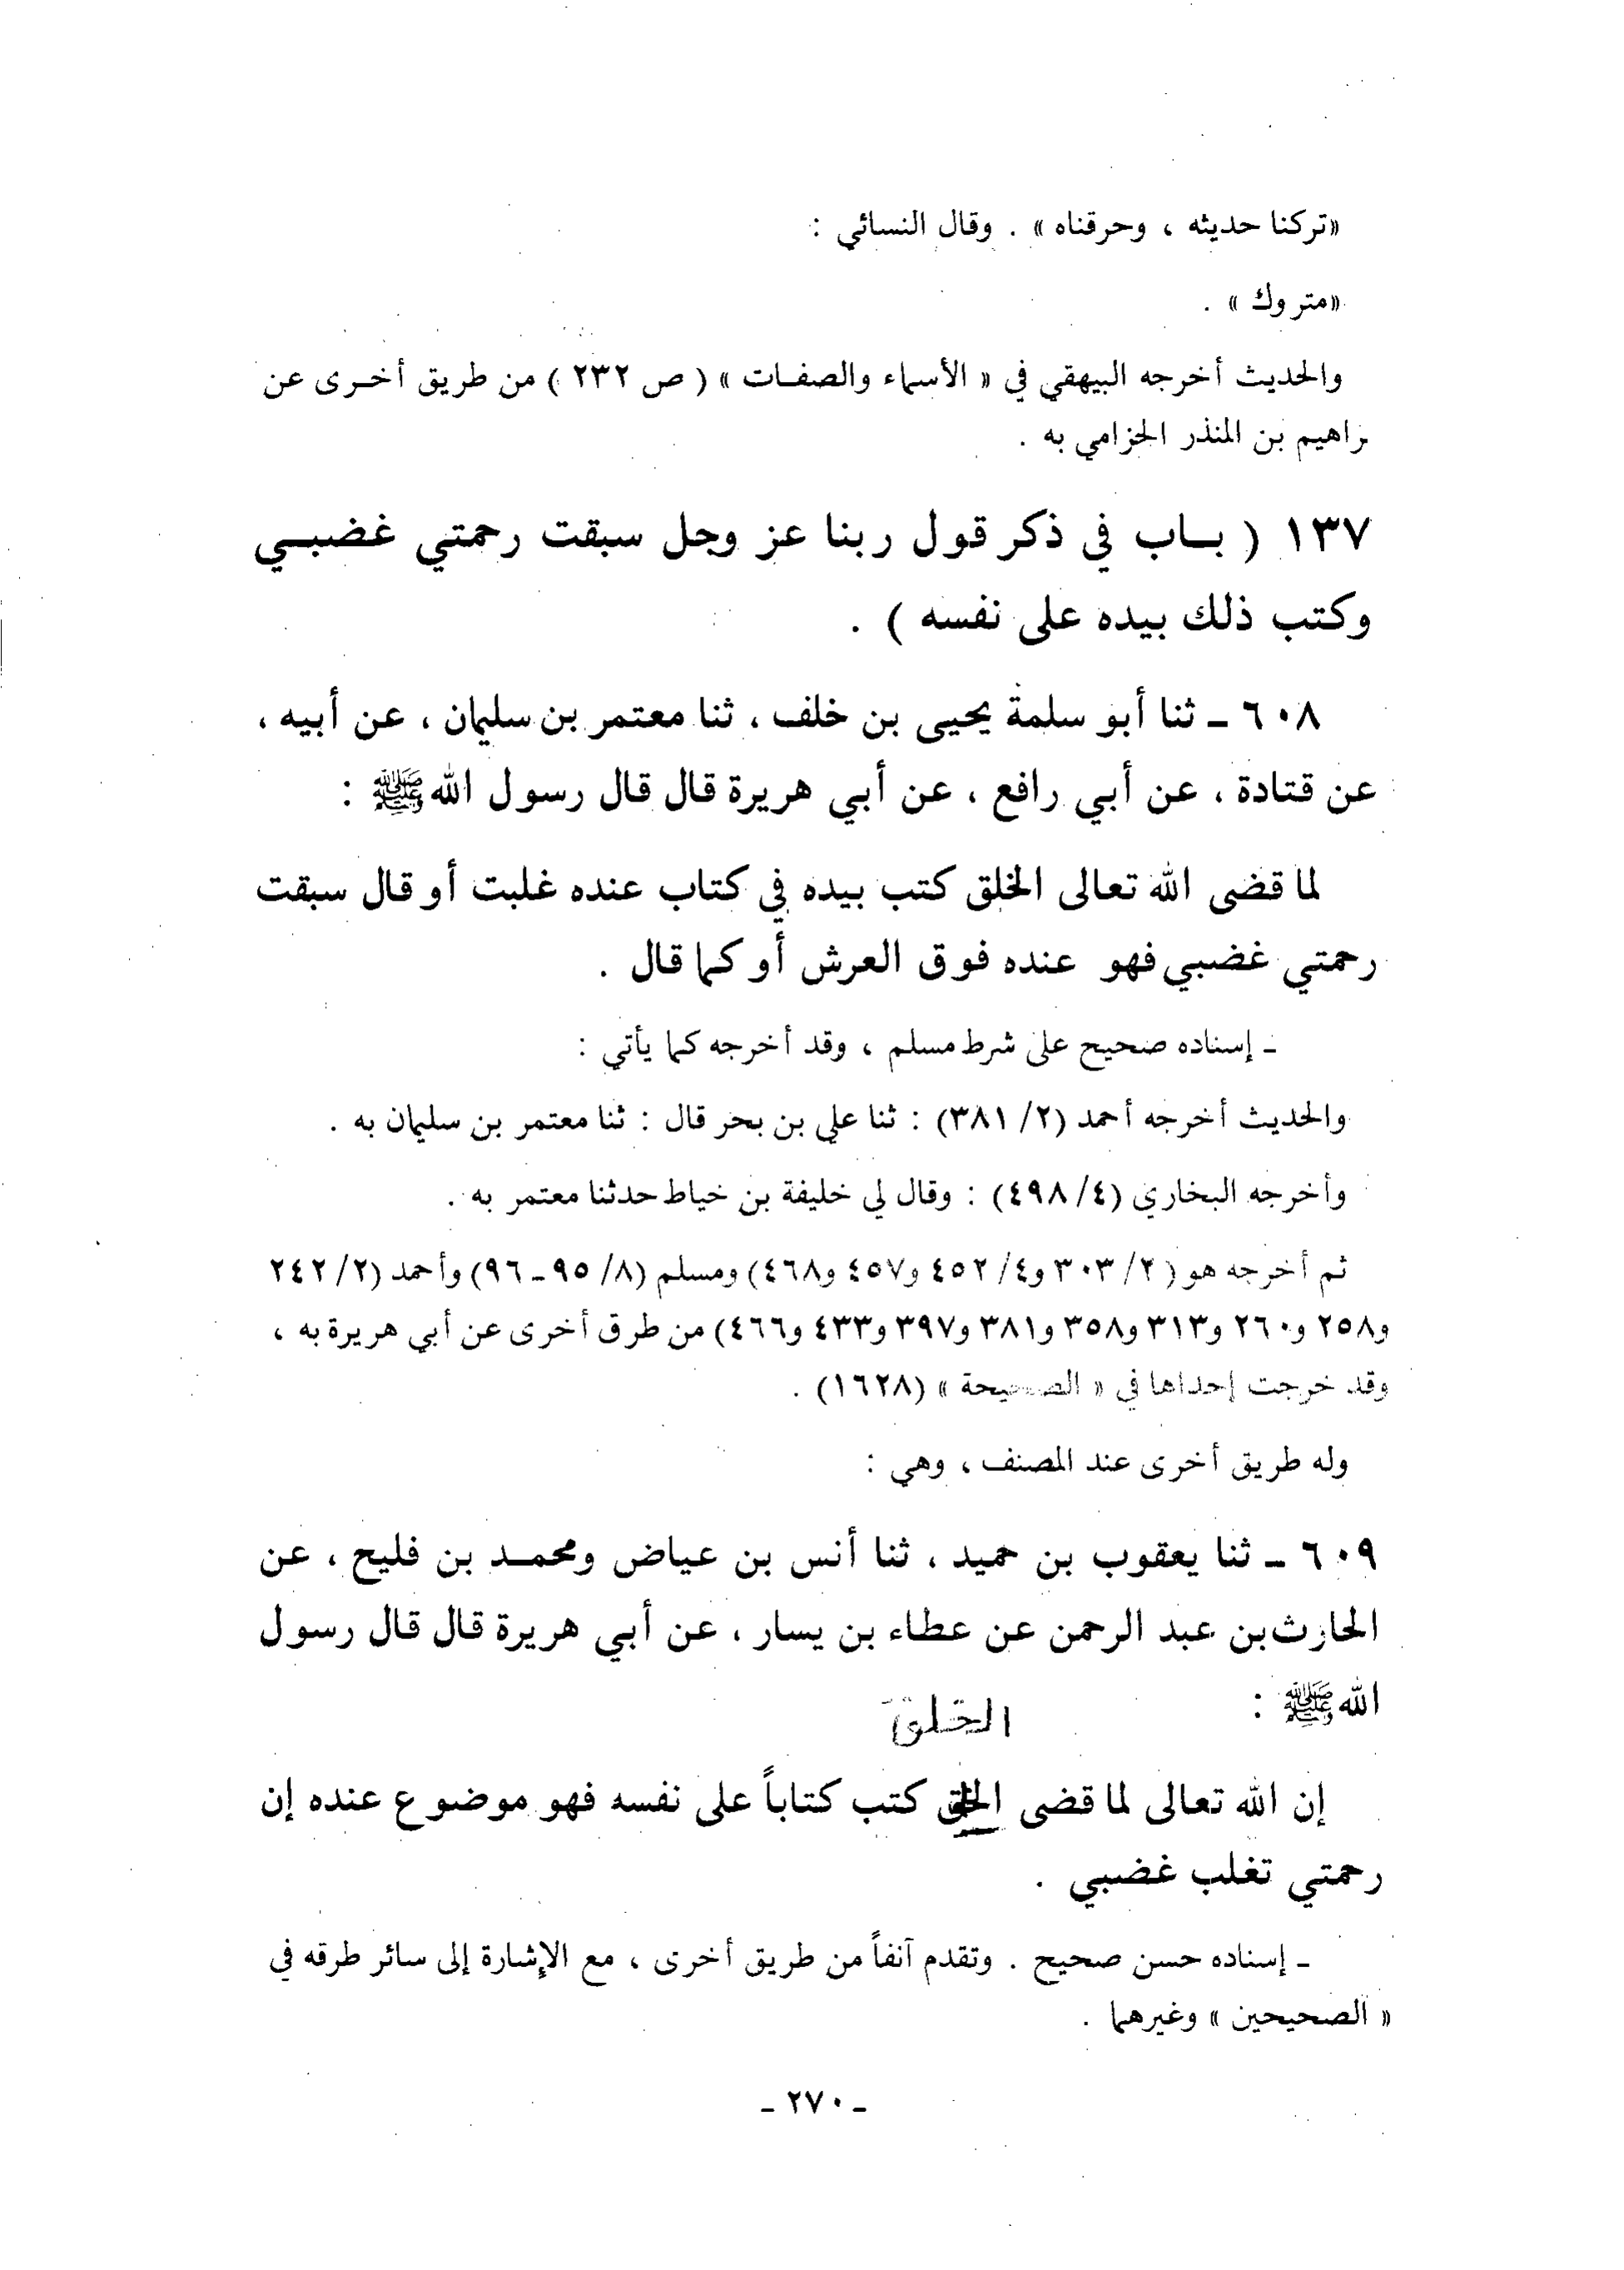 «تركنا حديثه ، وحرقناه» . وقال النسائي :
«متروك» .
والحديث أخرجه البيهقي في « الأسماء والصفات » ( ص ٢٣٢ ) من طريق أخرى عن
براهيم بن المنذر الحزامي به .
١٣٧ ( باب في ذكر قول ربنا عز وجل سبقت رحمتي غضبي
وكتب ذلك بيده على نفسه ) .
٦٠٨ - ثنا أبو سلمة يحيى بن خلف ، ثنا معتمر بن سليمان ، عن أبيه ،
عن قتادة ، عن أبي رافع ، عن أبي هريرة قال قال رسول الله ﷺ :
لما قضى الله تعالى الخلق كتب بيده في كتاب عنده غلبت أو قال سبقت
رحمتي غضبي فهو عنده فوق العرش أو كما قال .
- إسناده صحيح على شرط مسلم ، وقد أخرجه كما يأتي :
والحديث أخرجه أحمد (٢/ ٣٨١) : ثنا علي بن بحر قال : ثنا معتمر بن سليمان به .
وأخرجه البخاري (٤/ ٤٩٨) : وقال لي خليفة بن خياط حدثنا معتمر به .
ثم أخرجه هو (٢/ ٣٠٣ و٤/ ٤٥٢ و٤٥٧ و٤٦٨) ومسلم (٨/ ٩٥ - ٩٦) وأحمد (٢/ ٢٤٢
و٢٥٨ و٢٦٠ و٣١٣ و٣٥٨ و٣٨١ و٣٩٧ و٤٣٣ و٤٦٦) من طرق أخرى عن أبي هريرة به ،
وقد خرجت إحداها في « الصحيحة » (١٦٢٨) .
وله طريق أخرى عند المصنف ، وهي :
٦٠٩ - ثنا يعقوب بن حميد ، ثنا أنس بن عياض ومحمد بن فليح ، عن
الحارث بن عبد الرحمن عن عطاء بن يسار ، عن أبي هريرة قال قال رسول
الله ﷺ :
الخلق
إن الله تعالى لما قضى الخلق كتب كتاباً على نفسه فهو موضوع عنده إن
رحمتي تغلب غضبي .
- إسناده حسن صحيح . وتقدم آنفاً من طريق أخرى ، مع الإشارة إلى سائر طرقه في
« الصحيحين » وغيرهما .
- ٢٧٠ -